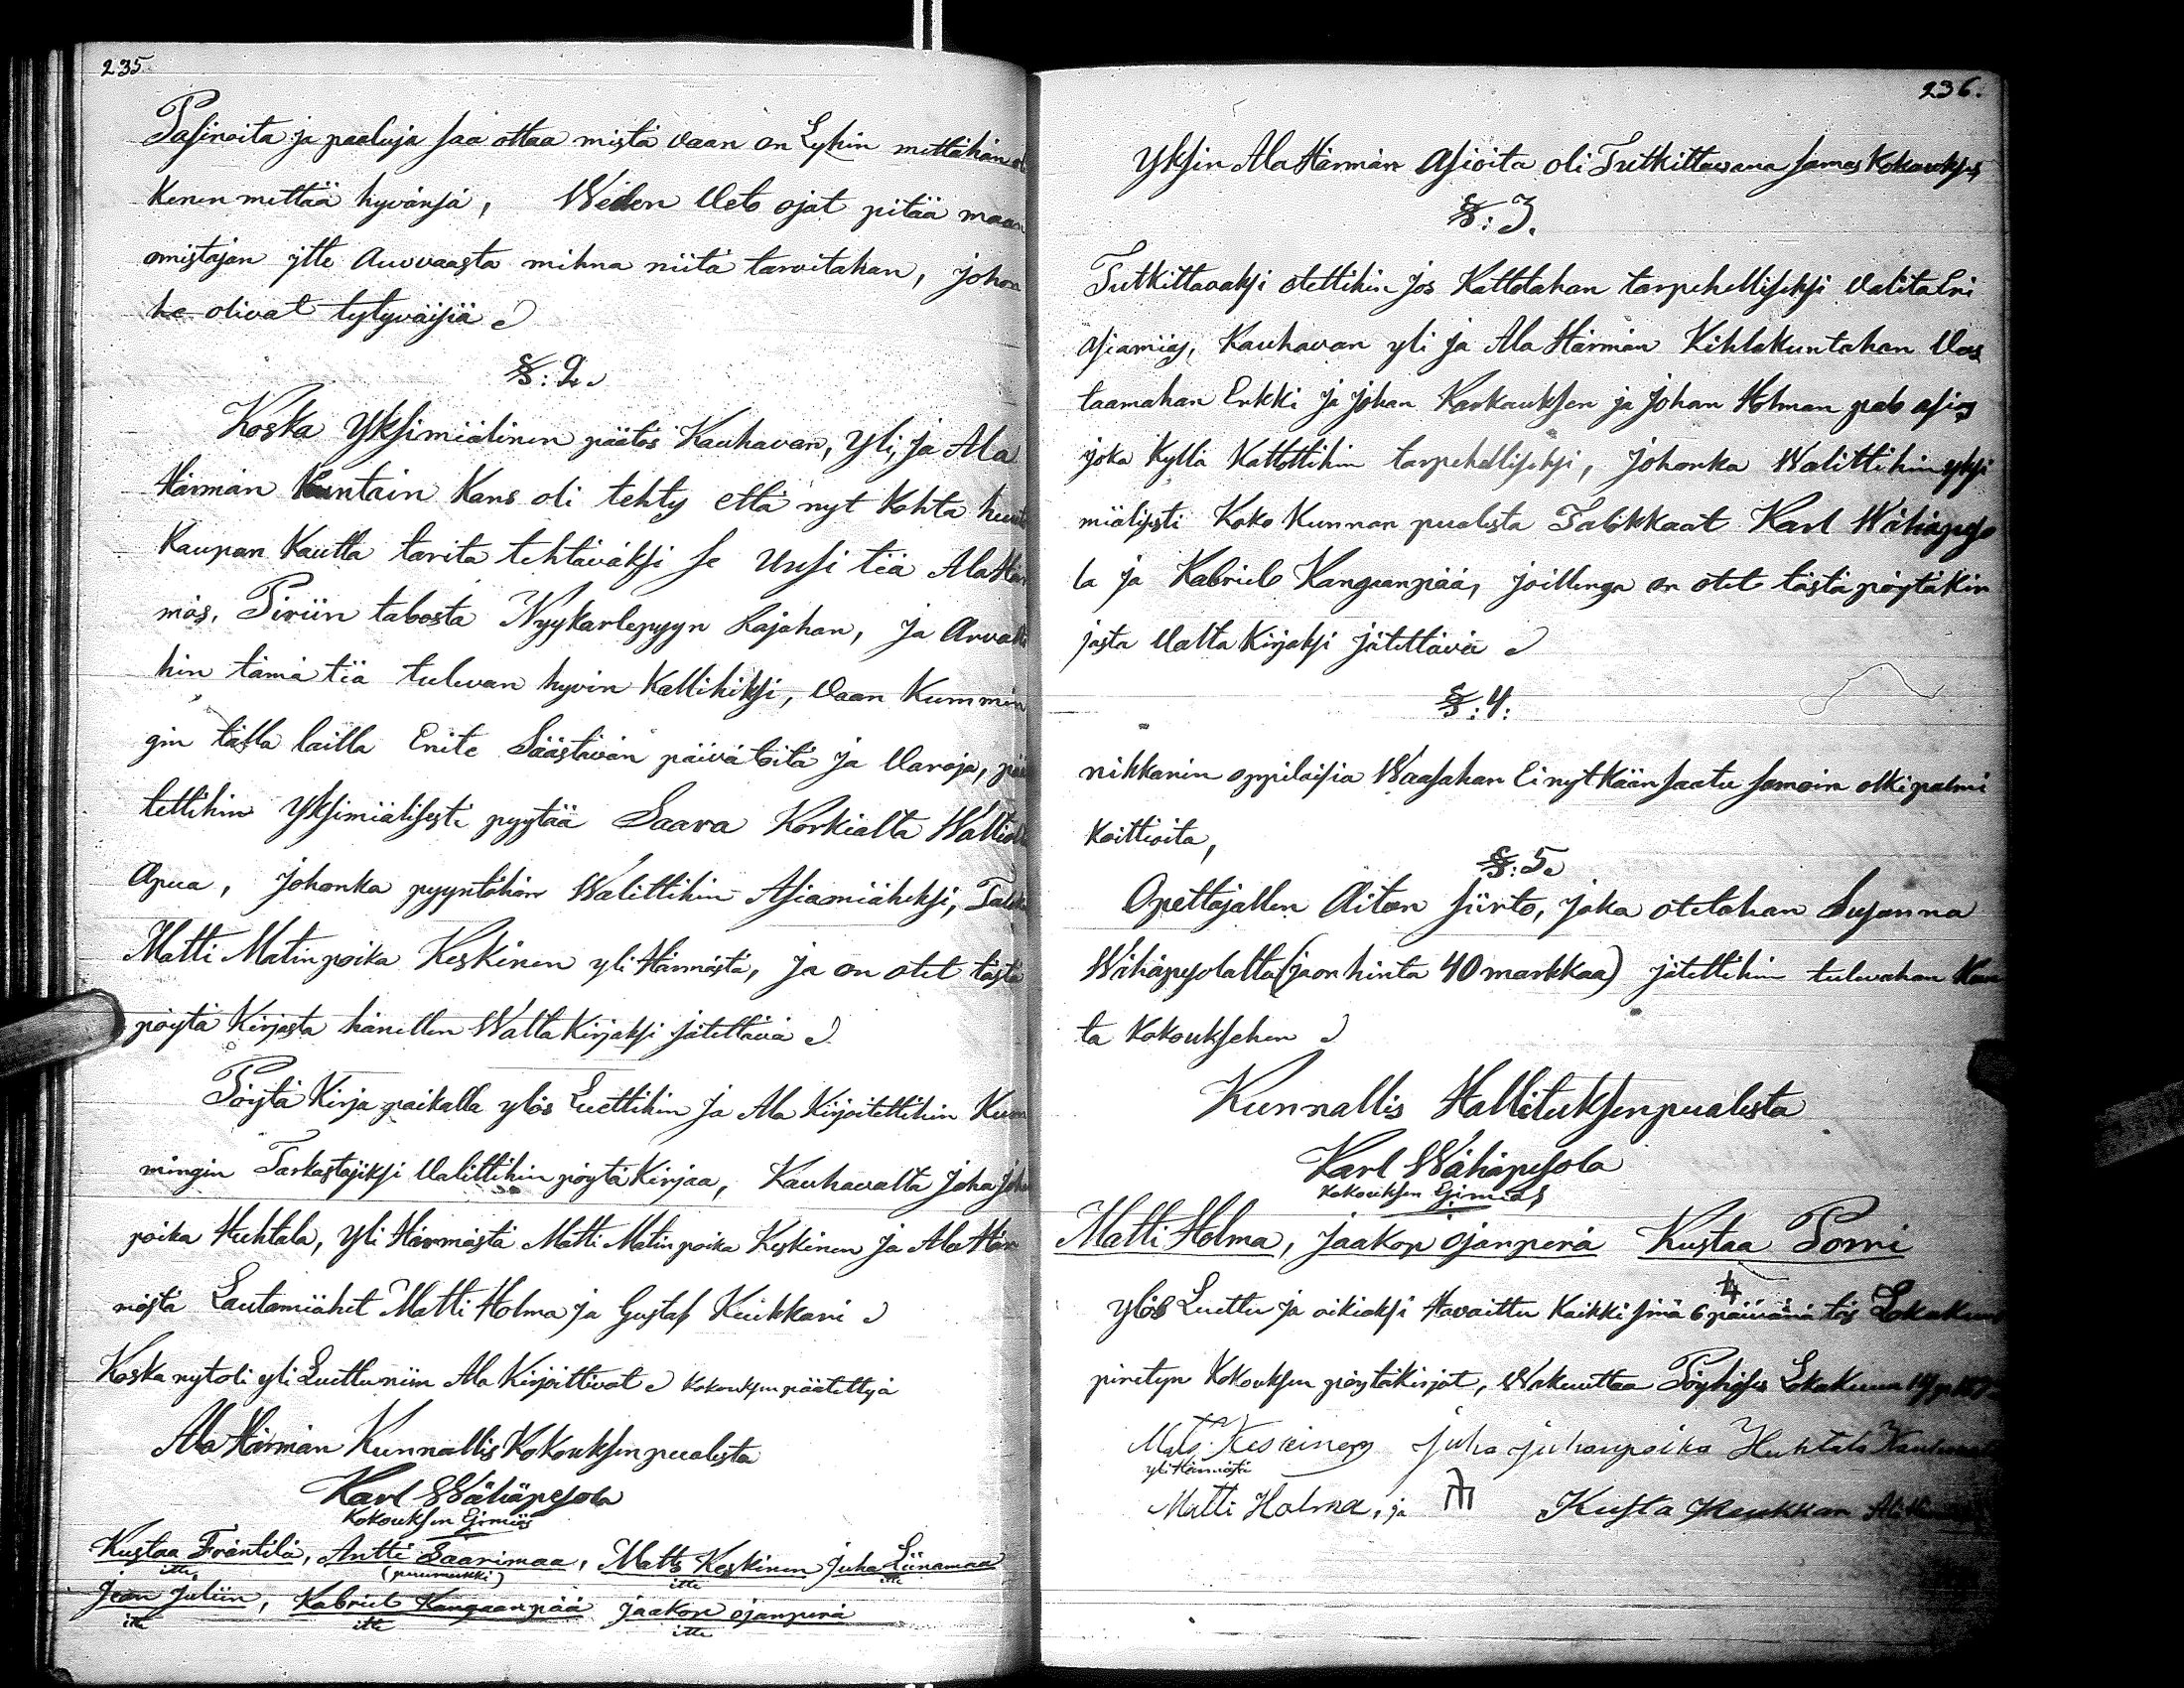 235.
Pasinoita ja paaluja saa ottaa mistä vaan on Lyhin mettähän
Kenen mettää hyvänsä, Weden Veto ojat pitää maan
omistajan ytte Auvvaasta mihnä niitä tarvitahan, johon
he olivat tytyväisiä
§: 2.
Koska Yksimiälinen päätös Kauhavan, Yli, ja Ala
Härmän Kuntain Kans oli tehty että nyt Kohta huuto
Kaupan Kautta tarita tehtäväksi se Uusi tiä Ala Här
mäs, Piriin talosta Nyykarlepyyn Rajahan, ja Arvatti
hin tämä tiä tulevan hyvin Kallihiksi, Vaan Kummin
gin tällä lailla Enite Säästävän päivätöitä ja Varoja, pää
tettihin Yksimiälisesti pyytää Saara Korkialta Waltiolta
Apua, johonka pyyntöhön Walittihin Asiamiäheksi,
Matti Matinpoika Keskinen yli Härmästä, ja on otet tästä
pöytä Kirjasta hänellen Walta Kirjaksi jätettävä
Pöytä Kirja paikalla ylös Luettihin ja Ala Kirjoitettihin Kum
mingin Tarkastajiksi Valittihin pöytä Kirjaa, Kauhavalta Joha Joha
poika Huhtala, Yli Härmästä Matti Matin poika Keskinen ja Ala Här
mästä Lautamiähet Matti Holma ja Gustaf Kuikkari
Koska nyt oli yli Luettu niin Ala Kirjoittivat Kokouksen päätettyä
Ala Härmän Kunnallis Kokouksen puolesta
Karl Wähäpesola
Kokouksen Esimiäs
Kustaa Fräntilä, Antti Saarimaa, Matts Keskinen Juha Liinamaa
itte (puumerkki) itte itte
Jean Juliin, Kabriel Kangaanpää Jaakop Ojanperä
itte itte itte
236.
Yksin Ala Härmän Asioita oli Tutkittavana samas Kokoukses
§: 3.
Tutkittavaksi otettihin jos Kattotahan tarpehelliseksi Valita
Asiamiäs, Kauhavan yli ja Ala Härmän Kihlakuntahan Vas
taamahan Erkki ja Johan Karkauksen ja Johan Holman palo asias
joka Kyllä Kattottihin tarpehelliseksi, johonka Walittihin yksi
miälisesti Koko Kunnan puolesta Talokkaat Karl Wähäpeso
la ja Kabriel Kangaanpää, joillenga on otet tästä pöytäkir
jasta Valta Kirjaksi jätettävä
§: 4:
nikkarin oppilaisia Waasahan Ei nytkään saatu samoin olkipalmi
koittioita,
§: 5.
Opettajallen Aitan siirto, joka otetahan Susanna
Wähäpesolalta (ja on hinta 40 markkaa) jätettihin tulevahan Kun
ta Kokouksehen
Kunnallis Hallituksen puolesta
Karl Wähäpesola
Kokouksen Esimiäs
Matti Holma, Jaakop Ojanperä Kustaa Porri
4
ylös Luettu ja oikiaksi Havaittu Kaikki sinä 6 päivänä täs Lokakuus
piretyn Kokouksen pöytäkirjat, Wakuuttaa Löyhiöses Lokakuun
Mats Keskinen Juha Juhanpoika Huhtala
yli Härmästä
Matti Holma, ja Kusta Kuikkari